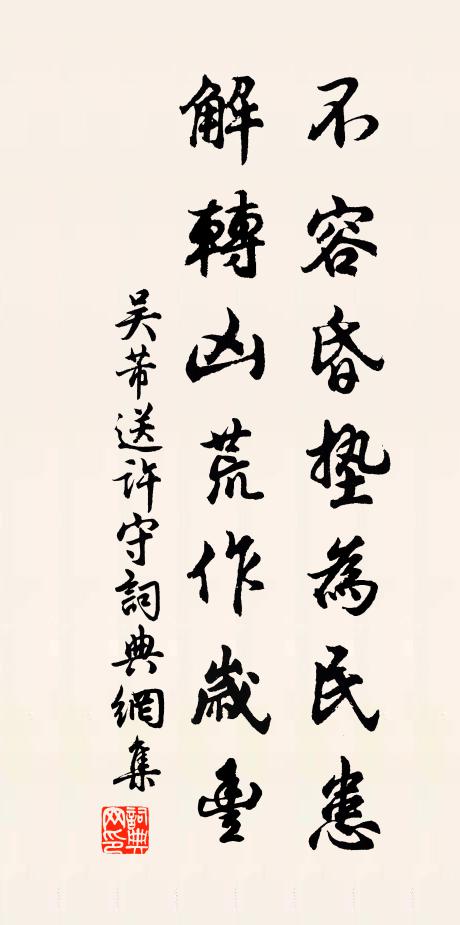 不容昏墊為民患
解轉凶荒作歲豐
吴芾送許守詞典網集
詞典網印